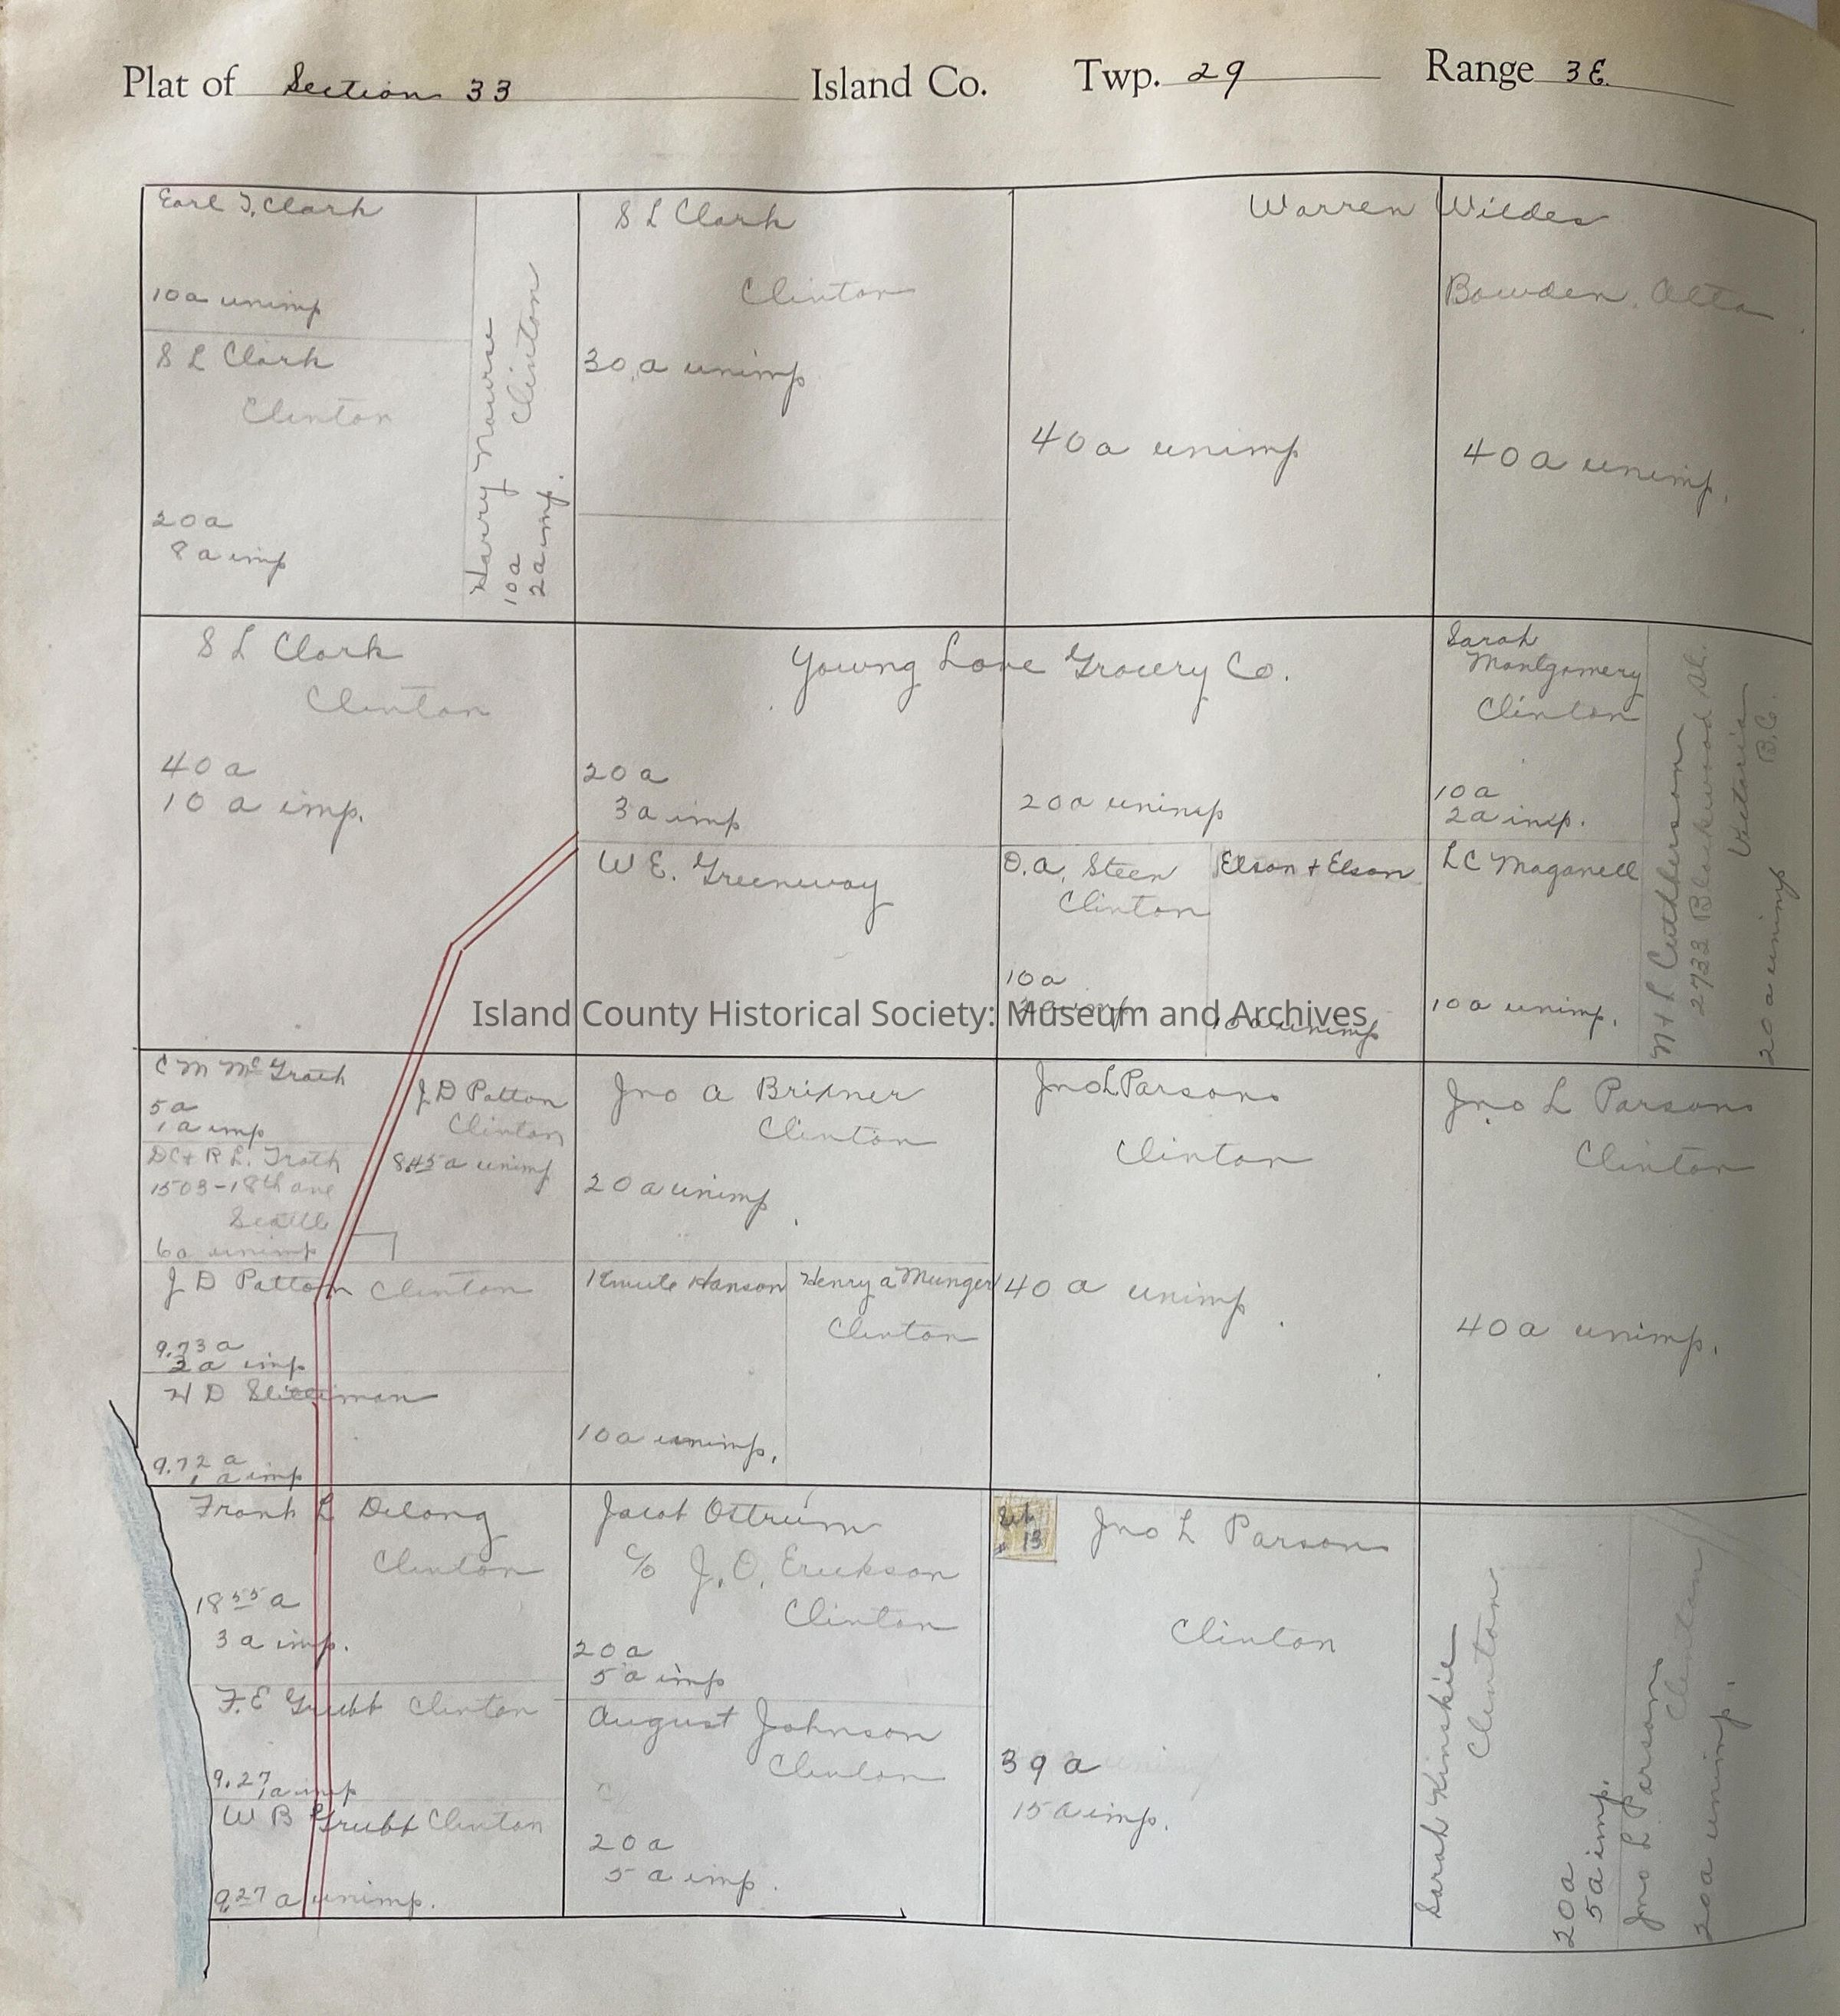 Plat of Section 33 Island Co. Twp. 29 Range 3E.
Earl T. Clark
10a unimp
S L Clark
Clinton
20a
8a imp
Harry Nourse
Clinton
10a
2a imp.
S L Clark
Clinton
30a unimp
Warren Wildes
Bowden, Alta
40a unimp
40a unimp.
S L Clark
Clinton
40a
10a imp.
Young Love Grocery Co.
20a
3a imp
20a unimp
W E. Greenway
O. A. Steen
Clinton
10a
Elson + Elson
10a unimp
Sarah
Montgomery
Clinton
10a
2a imp.
L C Maganell
10a unimp.
Cuthbertson
2733 Blackwood St.
Victoria
B.C.
20a unimp
Island County Historical Society: Museum and Archives
C M McGrath
5a
1a imp
D C + R L. Troth
1503-18th ave
Seattle
6a unimp
J D Patton
Clinton
8.45a unimp
J D Patton Clinton
9.73a
2a imp
9.72a
1a imp
Jno A Brixner
Clinton
20a unimp
Knute Hanson
10a unimp.
Henry A Munger
Clinton
Jno L Parsons
Clinton
40a unimp.
Jno L Parsons
Clinton
40a unimp.
Frank L Delong
Clinton
18 55 a
3a imp.
F. E Grubb Clinton
9.27
1a imp
W B Grubb Clinton
9.27 a unimp.
Jacob Ostrum
c/o J. O. Erickson
Clinton
20a
5a imp
August Johnson
Clinton
20a
5a imp.
13
Jno L Parsons
Clinton
39a
15a imp.
Sarah Kinskie
Clinton
20a
5a imp.
Jno L Parsons
Clinton
20a unimp.